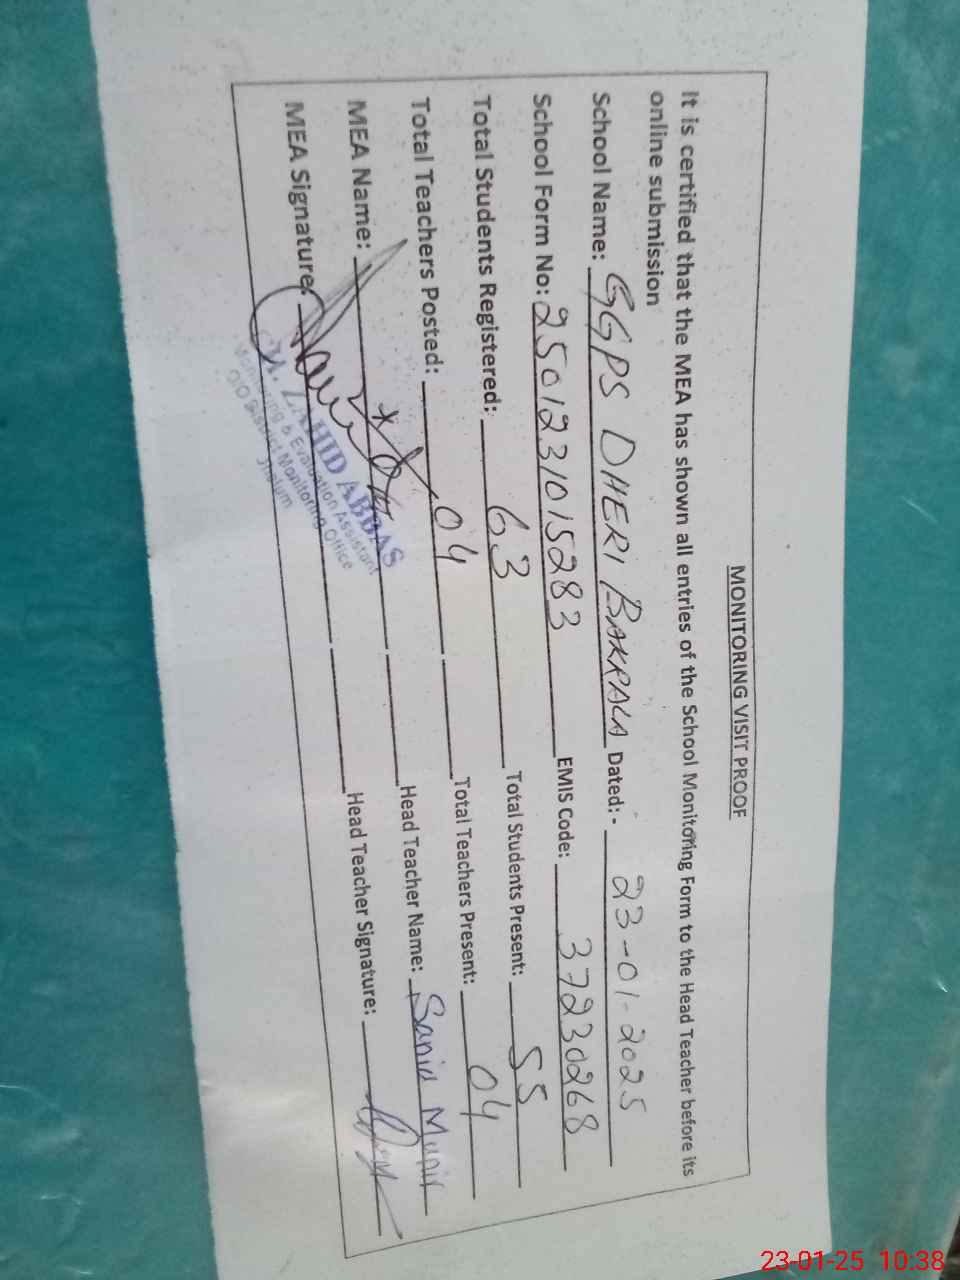 MONITORING VISIT PROOF
It is certified that the MEA has shown all entries of the School Monitoring Form to the Head Teacher before its
online submission
School Name: GGPS DHERI BAKRALA Dated:- 23-01-2025
School Form No: 2501231015283 EMIS Code: 37230268
Total Students Registered: 63 Total Students Present: 55
Total Teachers Posted: 04 Total Teachers Present: 04
MEA Name: Head Teacher Name: Sania Munir
MEA Signature: Head Teacher Signature:
ZAHID ABBAS
Monitoring & Evaluation Assistant
O/O District Monitoring Office
Jhelum
23-01-25 10:38